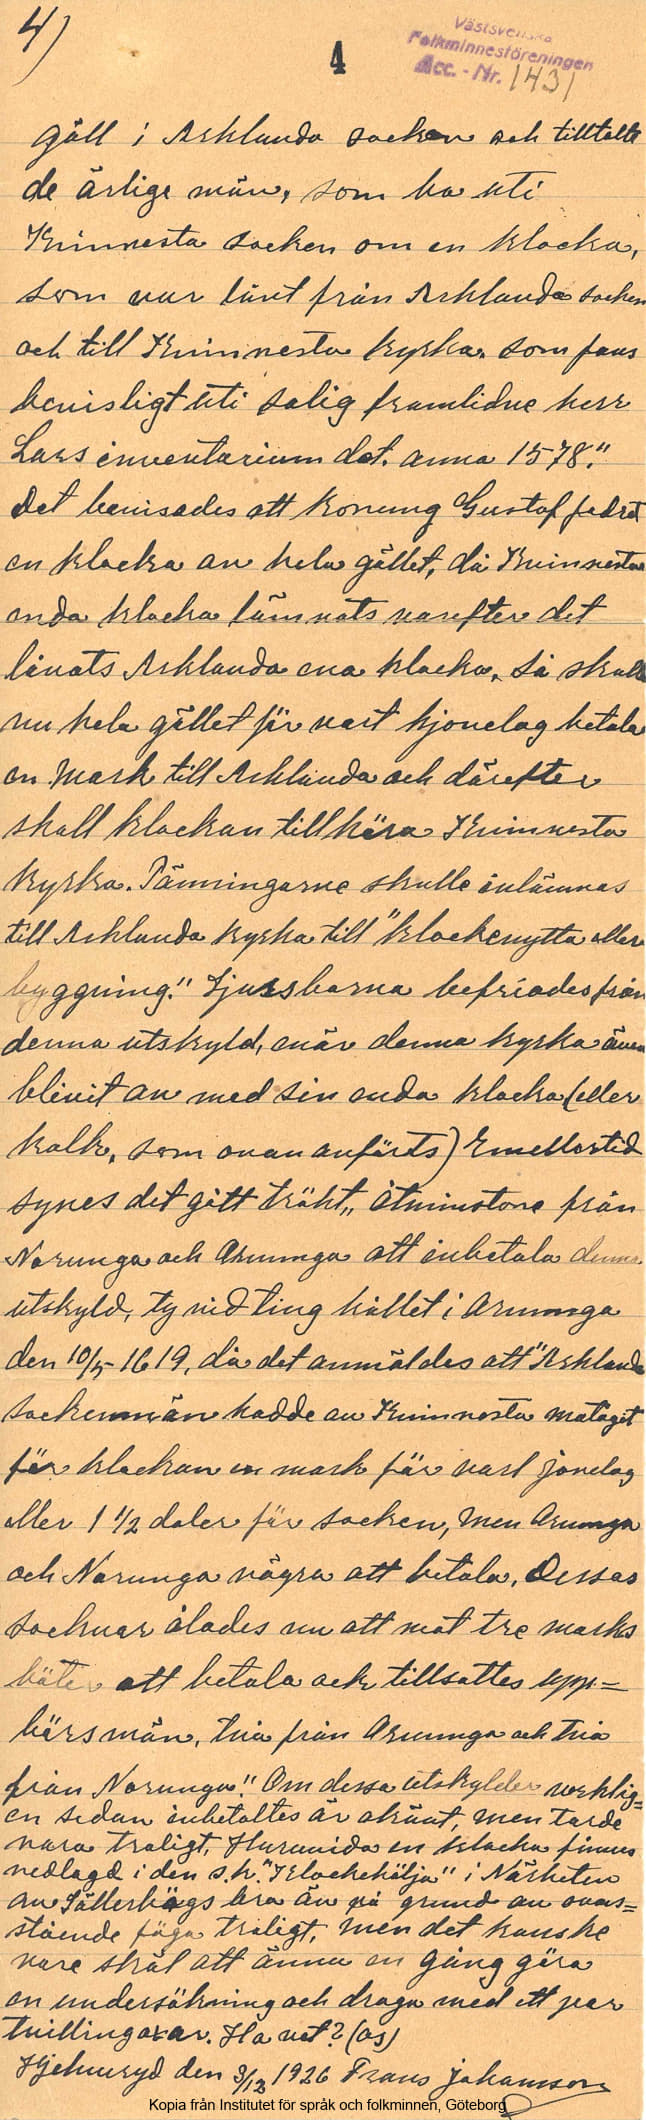 4)
4
Västsvenska
Folkminnesföreningen
Acc. - Nr. 1431
gäll i Asklanda socken och tilltalte
de ärlige män, som bo uti
Kvinnesta socken om en klocka,
som var lånt från Asklanda socken
och till Kvinnesta kyrka, som fans
bevisligt uti salig framlidne herr
Lars inventarium dat. anna 1578."
Det bevisades att konung Gustaf fodrat
en klocka av hela gället, då Kvinnesta
enda klocka lämnats varefter det
lånats Asklanda ena klocka. Så skall
nu hela gället för vart hjonelag betala
en mark till Asklanda och därefter
skall klockan tillhöra Kvinnesta
kyrka. Pänningarne skulle inlämnas
till Asklanda kyrka till "klockenytta eller
byggning." Ljursbarna befriades från
denna utskyld, enär denna kyrka även
blivit av med sin enda klocka (eller
kalk, som ovan anförts) Emellertid
synes det gått trökt, åtminstone från
Norunga och Ornunga att inbetala denna
utskyld, ty vid ting hållet i Ornunga
den 10/5 1619, då det anmäldes att "Asklanda
sockenmän hadde av Kvinnesta motaget
för klockan en mark för vart jonelag
eller 1 1/2 daler för socken, men Ornunga
och Norunga vägra att betala. Dessas
socknar ålades nu att vid tre marks
böter att betala och tillsattes upp=
börsmän, tvia från Ornunga och tvia
från Norunga." Om dessa utskylder verklig=
en sedan inbetaltes är okänt, men torde
vara troligt. Huruvida en klocka finnes
nedlagd i den s.k. "Klockehölja" i Närheten
av Sällerhögs bro än på grund av ovan=
stående föga troligt, men det kanske
vore skäl att ännu en gång göra
en undersökning och draga med ett par
tvillingoxar. Ho vet? (os)
Hjelmryd den 3/12 1926 Frans Johansson
Kopia från Institutet för språk och folkminnen, Göteborg